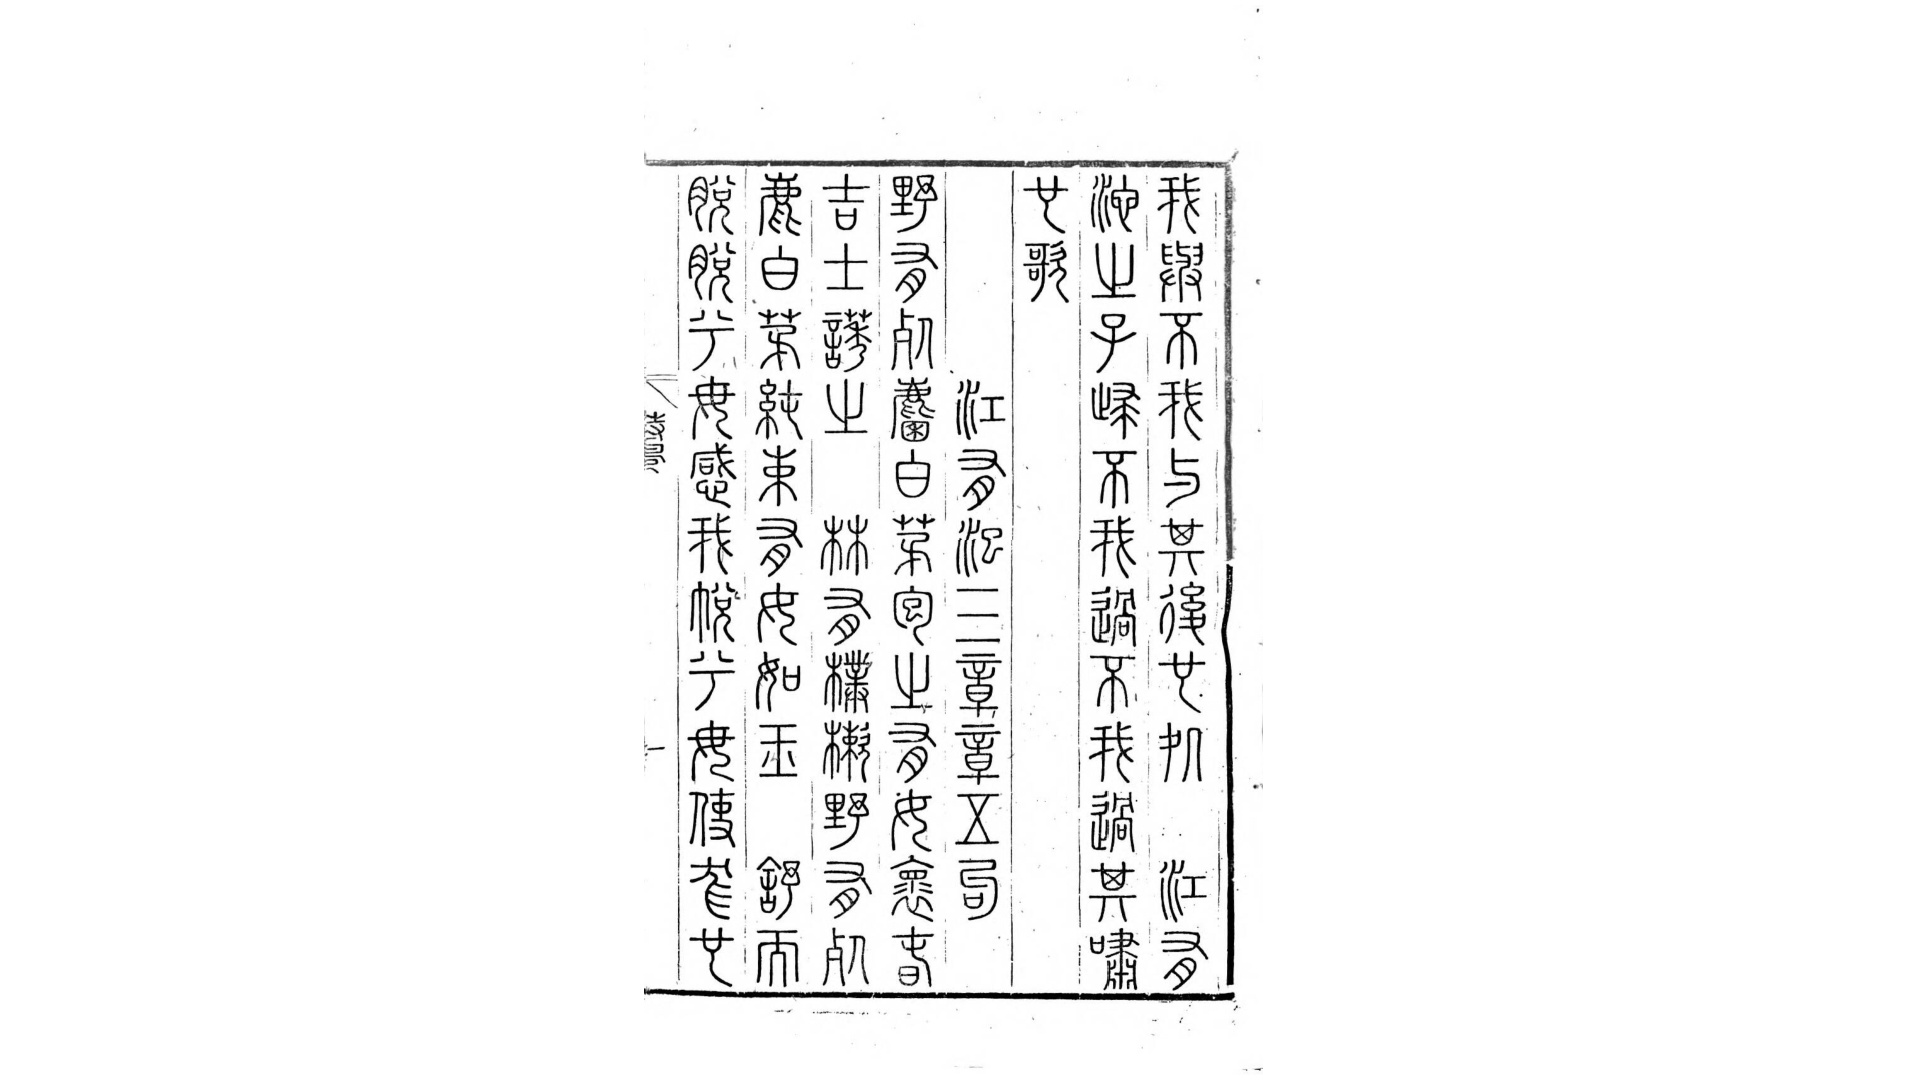 我與不我与其後也処　江有
沱之子歸不我過不我過其嘯
也歌
江有汜三章章五句
野有死麕白茅包之有女懷春
吉士誘之　林有樸樕野有死
鹿白茅純束有女如玉　舒而
脫脫兮毋感我帨兮毋使尨也